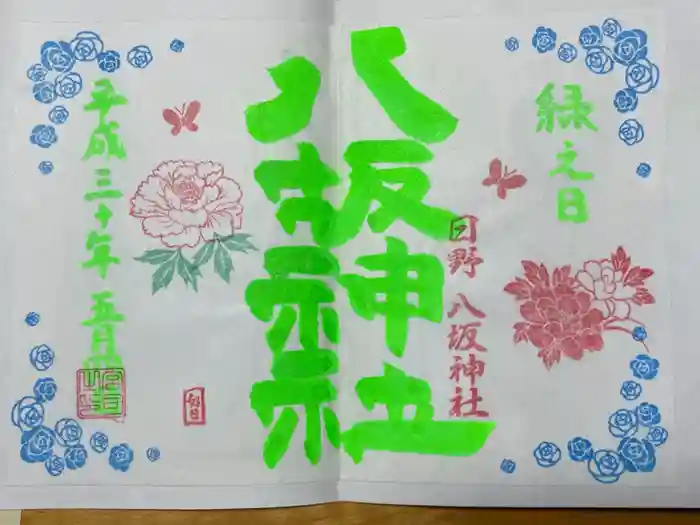 緑之日
日野 八坂神社
八坂神社
平成三十年 五月四